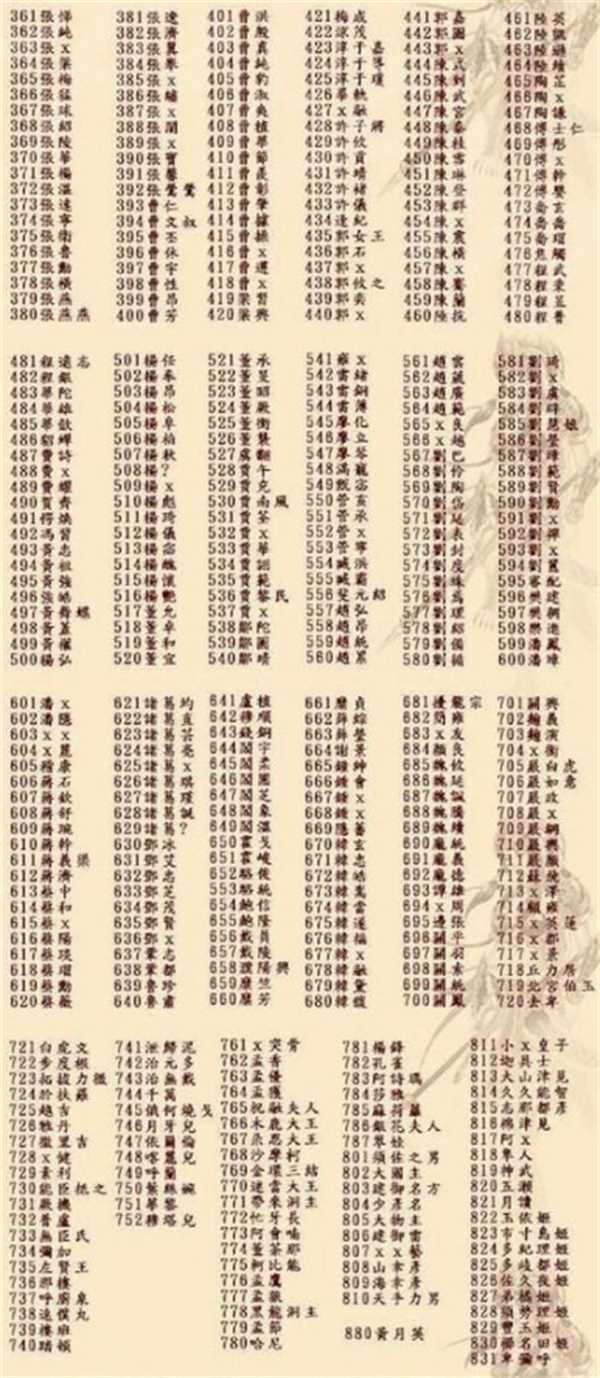 361張悌
362張純
363張x
364張梁
365張梅
366張猛
367張球
368張紹
369張陵
370張華
371張楊
372張溫
373張達
374張寧
375張衛
376張魯
377張勳
378張橫
379張燕
380張燕燕
381張遼
382張濟
383張翼
384張舉
385張x
386張繡
387張x
388張闓
389張x
390張寶
391張馨
392張鶯鶯
393曹仁
394曹文叔
395曹丕
396曹休
397曹宇
398曹性
399曹昂
400曹芳
401曹洪
402曹殷
403曹真
404曹純
405曹豹
406曹淑
407曹爽
408曹植
409曹華
410曹節
411曹嵩
412曹彰
413曹肇
414曹據
415曹操
416曹x
417曹遵
418曹x
419梁習
420梁興
421梅成
422涼茂
423淳于嘉
424淳于導
425淳于瓊
426畢軌
427x融
428許子將
429許攸
430許貢
431許靖
432許褚
433許儀
434逢紀
435郭女王
436郭石
437郭x
438郭攸之
439郭奕
440郭x
441郭嘉
442郭圖
443郭x
444陳式
445陳到
446陳武
447陳宮
448陳泰
449陳桂
450陳雪
451陳琳
452陳登
453陳群
454陳x
455陳震
456陳橫
457陳x
458陳騫
459陳蘭
460陸抗
461陸英
462陸凱
463陸遜
464陸績
465陶芷
466陶x
467陶謙
468傅士仁
469傅彤
470傅x
471傅幹
472傅嬰
473喬玄
474喬喬
475喬瑁
476焦觸
477程武
478程秉
479程昱
480程普
481程遠志
482程銀
483華陀
484華雄
485華歆
486貂蟬
487費詩
488費x
489費耀
490賀齊
491愕煥
492馮習
493黃忠
494黃祖
495黃強
496張皓
497黃舞蝶
498黃蓋
499黃權
500楊弘
501楊任
502楊奉
503楊昂
504楊松
505楊阜
506楊柏
507楊秋
508楊?
509楊x
510楊彪
511楊琦
512楊儀
513楊宓
514楊醜
515楊懷
516楊艷
517董允
518董卓
519董和
520董宜
521董承
522董旻
523董昭
524董厥
525董衡
526董襲
527虞翻
528賈午
529賈充
530賈南風
531賈荃
532賈x
533賈華
534賈詡
535賈範
536賈黎民
537賈x
538鄒陀
539鄒圖
540鄒靖
541雍x
542雷緒
543雷銅
544雷薄
545廖化
546廖立
547廖琴
548滿寵
549甄宓
550管亥
551管承
552管x
553管寧
554臧洪
555臧霸
556斐元紹
557趙弘
558趙昂
559趙統
560趙累
561趙雲
562趙葳
563趙廣
564趙範
565x良
566x越
567劉巴
568劉伶
569劉陶
570劉岱
571劉延
572劉表
573劉封
574劉度
575劉姝
576劉焉
577劉理
578劉紹
579劉備
580劉循
581劉琦
582劉x
583劉虞
584劉辟
585劉慧娥
586劉瑩
587劉璋
588劉範
589劉賢
590劉勳
591劉x
592劉禪
593劉x
594劉翼
595審配
596樊建
597樊稠
598樊進
599潘鳳
600潘璋
601潘x
602潘隱
603x x
604x麗
605稽康
606蔣石
607蔣欽
608蔣舒
609蔣琬
610蔣幹
611蔣義渠
612蔣濟
613蔡中
614蔡和
615蔡x
616蔡陽
617蔡琰
618蔡瑁
619蔡勳
620蔡薇
621諸葛均
622諸葛直
623諸葛芸
624諸葛亮
625諸葛x
626諸葛琪
627諸葛瑾
628諸葛誕
629諸葛?
630鄧冰
631鄧艾
632鄧忠
633鄧芝
634鄧茂
635鄧賢
636鄧x
637鞏志
638鞏都
639魯珍
640魯肅
641盧植
642穆順
643錢銅
644閻宇
645閻柔
646閻圃
647閻芝
648閻象
649閻溫
650霍戈
651霍峻
652駱俊
653駱統
654鮑信
655鮑隆
656戴員
657戴陵
658濮陽興
659糜竺
660糜芳
661糜貞
662薛綜
663薛瑩
664謝景
665鍾紳
666鍾會
667鍾x
668鍾x
669隱蕃
670韓玄
671韓忠
672韓皓
673韓嵩
674韓當
675韓遂
676韓福
677韓x
678韓融
679韓暹
680韓馥
681擾龍宗
682簡雍
683x友
684顏良
685魏攸
686魏延
687魏諷
688魏騰
689魏續
690龐統
691龐義
692龐德
693譚雄
694x周
695邊張
696關平
697關羽
698關索
699關統
700關鳳
701關興
702麴義
703麴演
704x衡
705嚴白虎
706嚴如意
707嚴政
708嚴x
709嚴綱
710嚴興
711嚴顏
712蘇飛
713x澤
714顧雍
715x英蓮
716x都
717x景
718丘力居
719北宮伯玉
720去卑
721白虎文
722步度根
723拓拔力微
724於扶羅
725越吉
726雅丹
727徹里吉
728x健
729素利
730能臣抵之
731厥機
732普盧
733無臣氏
734彌加
735左賢王
736那樓
737呼廚泉
738速僕丸
739樓班
740踏頓
741泄歸泥
742治元多
743治無戴
744千萬
745俄何燒戈
746月牙兒
747依爾倫
748喀麗兒
749呼蘭
750紫絲婉
751翠黎
752穆塔兒
761x突骨
762孟香
763孟優
764孟獲
765祝融夫人
766木鹿大王
767朵思大王
768沙摩柯
769金環三結
770速雷大王
771帶來洞主
772忙牙長
773阿會喃
774董荼那
775軻比能
776孟鷹
777孟徹
778黑龍洞主
779孟節
780哈尼
781楊鋒
782孔雀
783阿詩瑪
784莎雅
785麻荷蘿
786銀花夫人
787翠娃
801須佐之男
802大國主
803建御名方
804少彥名
805大物主
806建御雷
807x x藝
808山幸彥
809海幸彥
810天手力男
880黃月英
811小x皇子
812迦具士
813大山津見
814久久能智
815志那都彥
816綿津見
817阿x
818隼人
819神武
820五瀨
821月讀
822玉依姬
823市寸島姬
824多紀理姬
825多岐都姬
826佐久夜姬
827弟橘姬
828須勢理姬
829豐玉姬
830櫛名田姬
831卑彌呼